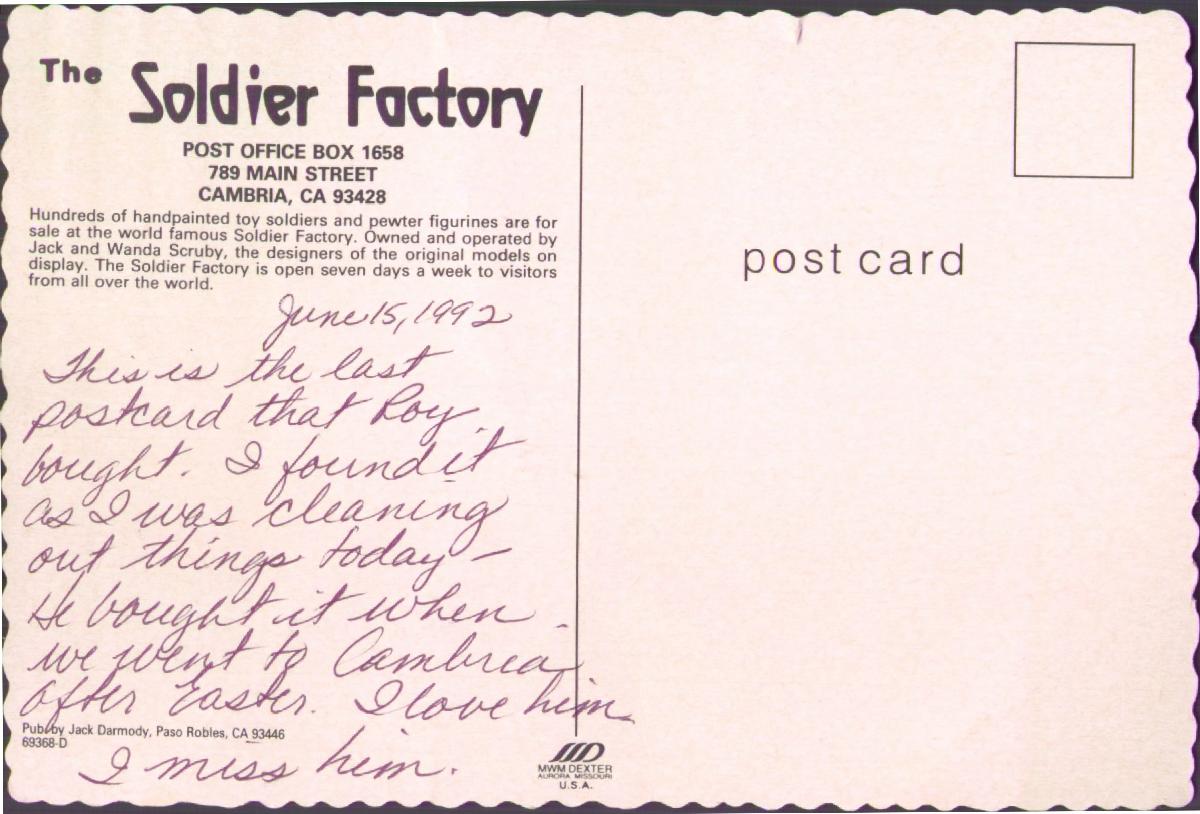 The Soldier Factory
POST OFFICE BOX 1658
789 MAIN STREET
CAMBRIA, CA 93428
Hundreds of handpainted toy soldiers and pewter figurines are for
sale at the world famous Soldier Factory. Owned and operated by
Jack and Wanda Scruby, the designers of the original models on
display. The Soldier Factory is open seven days a week to visitors
from all over the world.
June 15, 1992
This is the last
postcard that Roy
bought. I found it
as I was cleaning
out things today –
He bought it when
we went to Cambria
after Easter. I love him.
Pub. by Jack Darmody, Paso Robles, CA 93446
69368-D
I miss him.
MWM DEXTER
AURORA MISSOURI
U.S.A.
post card